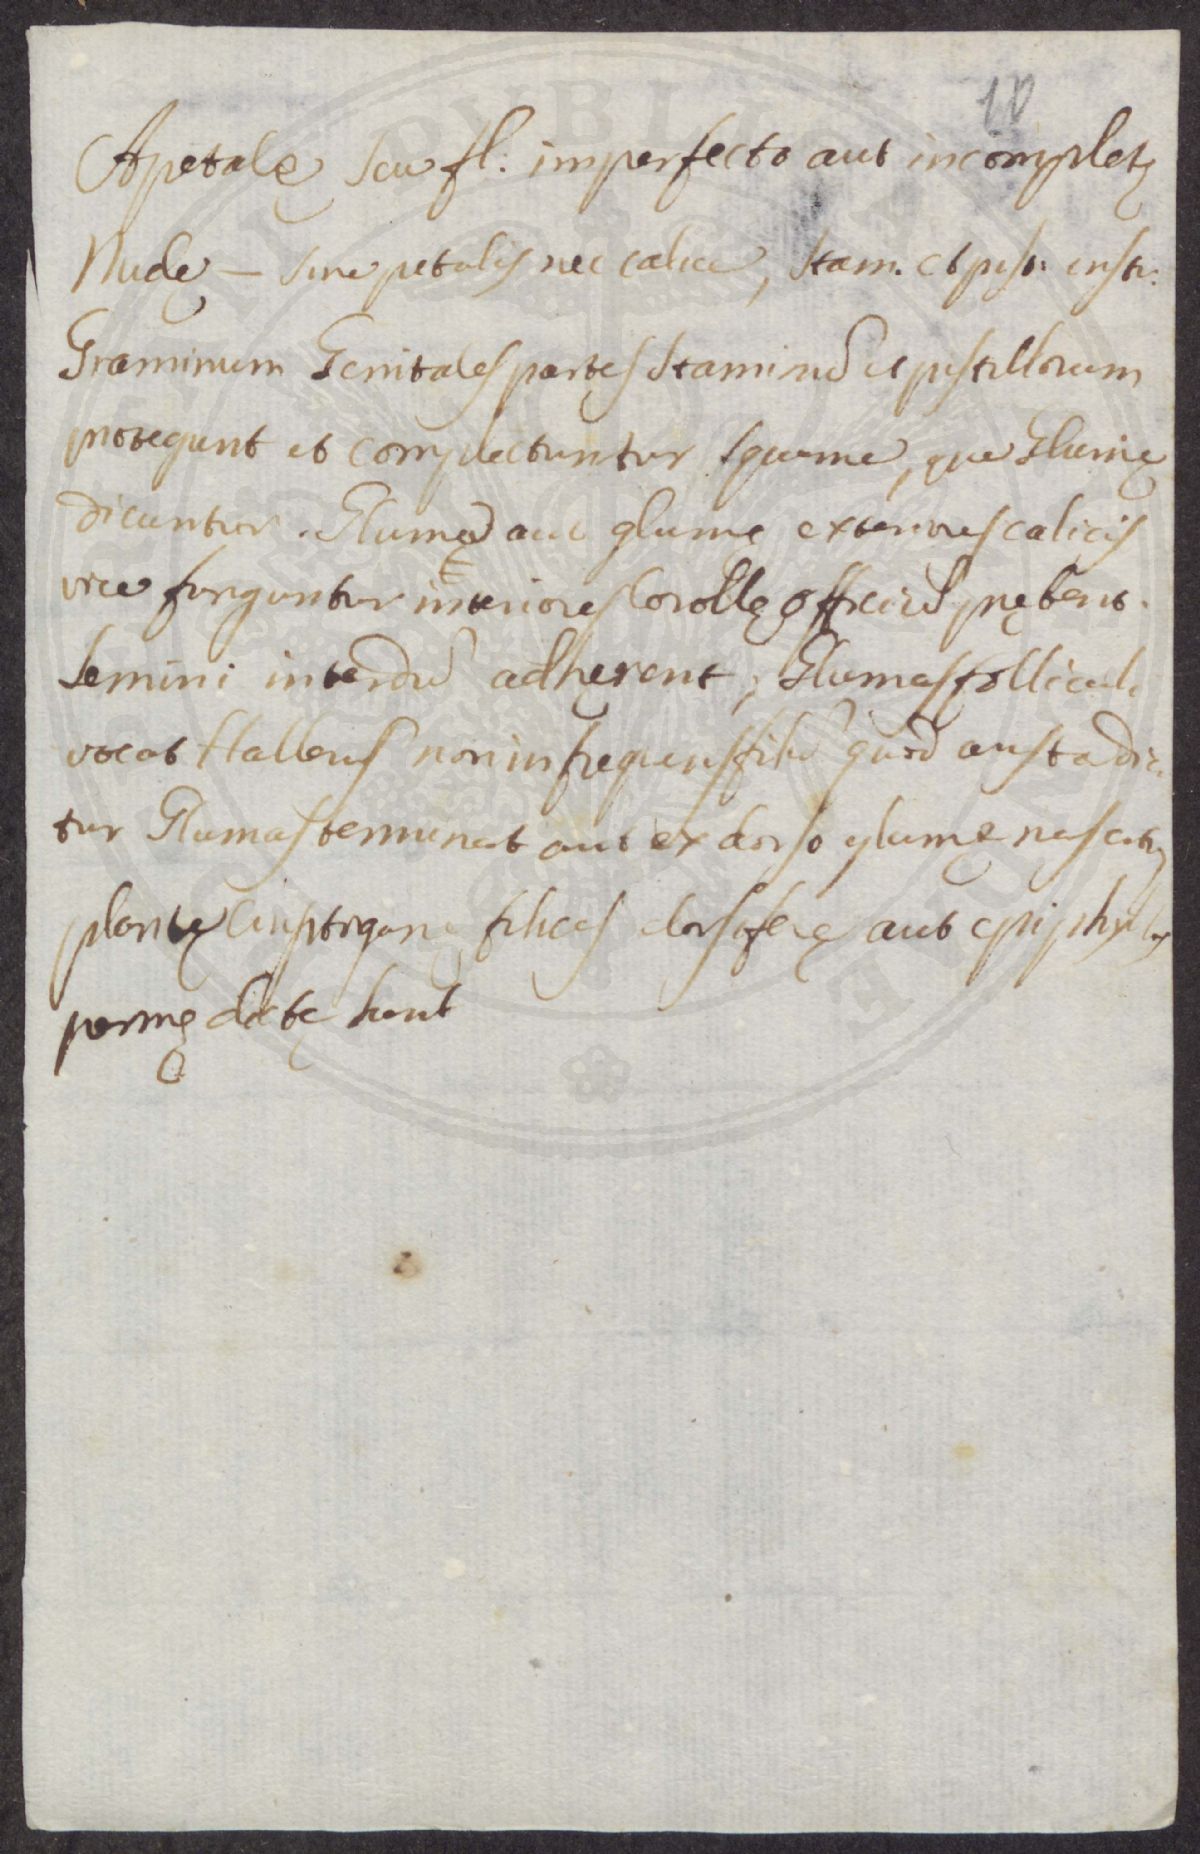 10
Apetalę seu fl: imperfecto aut incompletę
Nudę — sine petalis nec calice, stam. et pist: instr:
Graminum Genitales partes staminū et pistillorum
protegunt et complectuntur squame, que Glumę
dicuntur. Glumę aut glumę exteriores calicis
vice funguntur interiores Corollę officiū prębent.
Semini interdū adhęrent, Glumas folliculi
vocat Hallerus non infrequens filū quod arista dici
tur Glumas terminat aut ex dorso glumę nascitur
plantę Criptoganę filices dorsiferę aut epiphyllos
permę dictę sunt